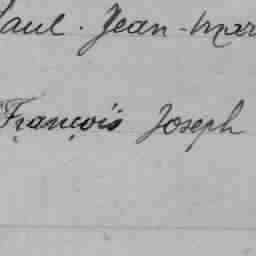 Paul. Jean-Mar
François Joseph